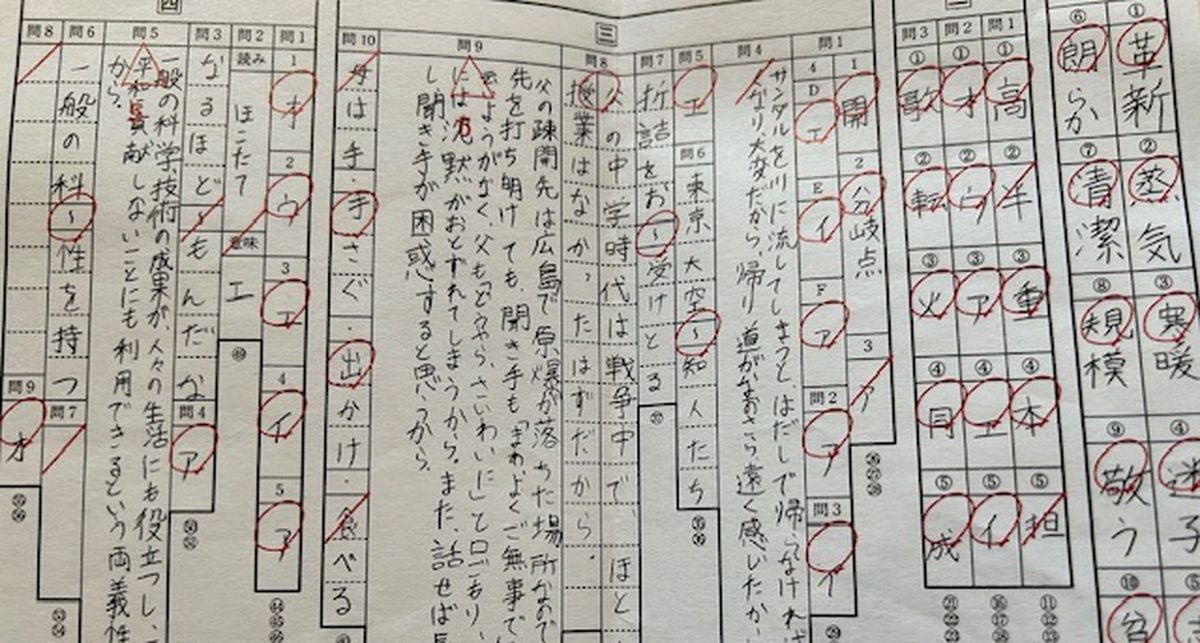 ① 革新
② 蒸気
③ 寒暖
④ 迷子
⑥ 朗らか
⑦ 青潔
⑧ 規模
⑨ 敬う
⑩
二
問1 ① 高 ② 半 ③ 重 ④ 本 ⑤ 担
問2 ① オ ② ウ ③ ア ④ エ ⑤ イ
問3 ① 歌 ② 転 ③ 火 ④ 同 ⑤ 成
三
問1 1 開 2 分岐点 3 ア
4 D エ E イ F ア
問2 ア
問3 イ
問4 サンダルを川に流してしまうと、はだしで帰らなければ
くなり、大変だから、帰り道が
遠く感じたか
問5 エ
問6 東京大空〜知人たち
問7 折詰をお〜受けとる
問8 父の中学時代は戦争中で、ほと
授業はなかったはずだから。
問9 父の疎開先は広島で原爆が落ちた場所なので
先を打ち明けても、聞き手も「まあ、よくご無事で
ようがなく、父も「どうやら、さいわいに」と口ごもり、
には沈黙がおとずれてしまうから。また、話せば
し聞き手が困惑すると思ったから
問10 母は手・手さぐ・出かけ・食べる
四
問1 1 オ 2 ウ 3 エ 4 イ 5 ア
問2 読み ほこたて 意味 エ
問3 なるほど〜もんだな
問4 ア
問5 一般の科学技術の成果が、人々の生活にも役立つし、
平和に貢献しないことにも利用できるという両義性
から。
問6 一般の科〜性を持つ
問7
問8
問9 オ